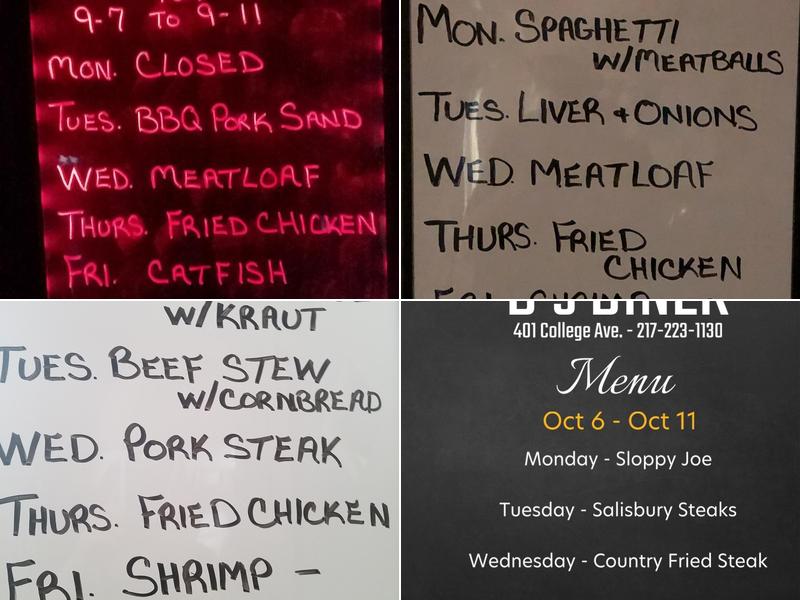 9-7 TO 9-11
MON. CLOSED
TUES. BBQ PORK SAND
WED. MEATLOAF
THURS. FRIED CHICKEN
FRI. CATFISH
MON. SPAGHETTI
W/MEATBALLS
TUES. LIVER + ONIONS
WED. MEATLOAF
THURS. FRIED
CHICKEN
FRI. SHRIMP
W/KRAUT
TUES. BEEF STEW
W/CORNBREAD
WED. PORK STEAK
THURS. FRIED CHICKEN
FRI. SHRIMP -
B'S DINER
401 College Ave. - 217-223-1130
Menu
Oct 6 - Oct 11
Monday - Sloppy Joe
Tuesday - Salisbury Steaks
Wednesday - Country Fried Steak